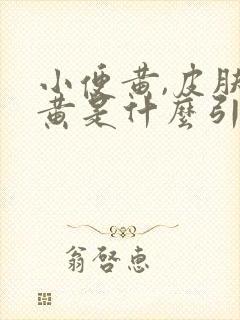 小便黄,皮肤
黄是什麼引
翁啓惠